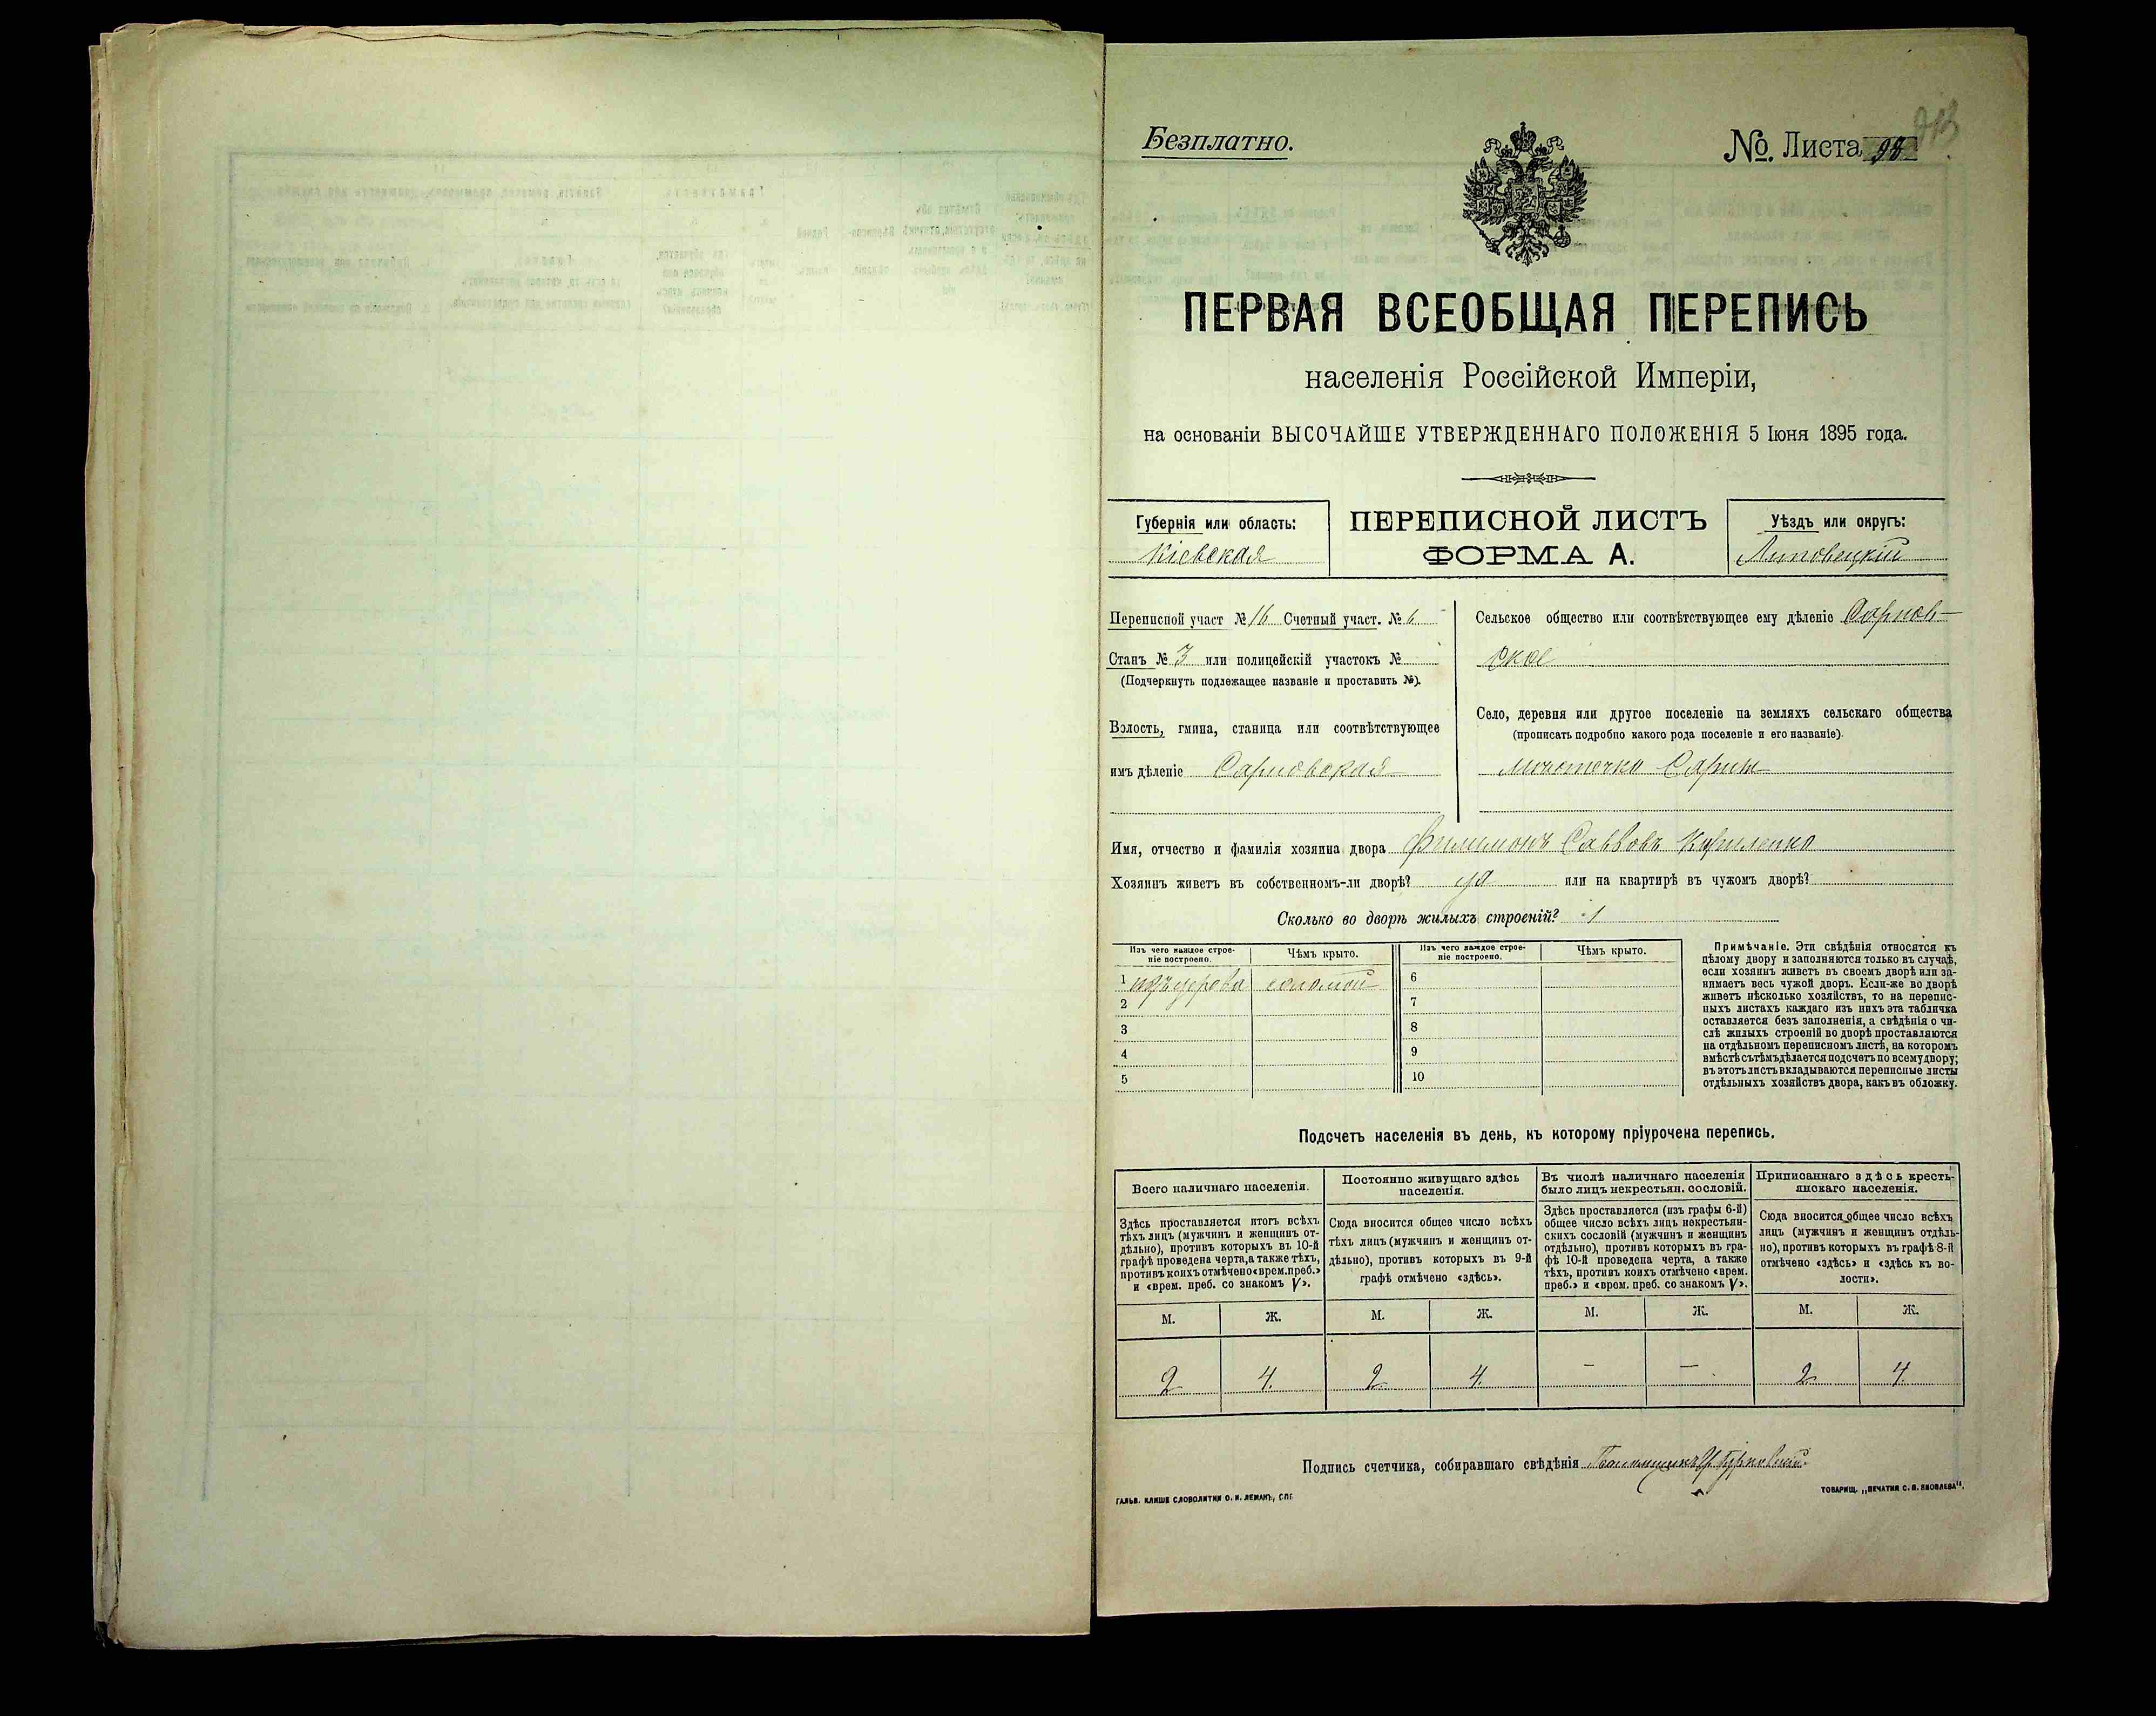 Безплатно.
№. Листа 98
ПЕРВАЯ ВСЕОБЩАЯ ПЕРЕПИСЬ
населенія Россійской Имперіи,
на основаніи ВЫСОЧАЙШЕ УТВЕРЖДЕННАГО ПОЛОЖЕНІЯ 5 Іюня 1895 года.
Губернія или область:
Кіевская
ПЕРЕПИСНОЙ ЛИСТЪ
ФОРМА А.
Уѣздъ или округъ:
Липовецкій
Переписной участ № 16 Счетный участ. № 6
Станъ № 3 или полицейскій участокъ №
(Подчеркнуть подлежащее названіе и проставить №).
Волость, гмина, станица или соотвѣтствующее
имъ дѣленіе Сарновская
Сельское общество или соотвѣтствующее ему дѣленіе Сарнов-
ское
Село, деревня или другое поселеніе на земляхъ сельскаго общества
(прописать подробно какого рода поселеніе и его названіе).
мѣстечко Сарны
Имя, отчество и фамилія хозяина двора Филимонъ Саввовъ Кириленко
Хозяинъ живетъ въ собственномъ-ли дворѣ? да или на квартирѣ въ чужомъ дворѣ?
Сколько во дворѣ жилыхъ строеній? 1
Изъ чего каждое строе-
ніе построено.
Чѣмъ крыто.
Изъ чего каждое строе-
ніе построено.
Чѣмъ крыто.
1 изъ дерева соломой
2
3
4
5
6
7
8
9
10
Примѣчаніе. Эти свѣдѣнія относятся къ
цѣлому двору и заполняются только въ случаѣ,
если хозяинъ живетъ въ своемъ дворѣ или за-
нимаетъ весь чужой дворъ. Если-же во дворѣ
живетъ нѣсколько хозяйствъ, то на перепис-
ныхъ листахъ каждаго изъ нихъ эта табличка
оставляется безъ заполненія, а свѣдѣнія о чи-
слѣ жилыхъ строеній во дворѣ проставляются
на отдѣльномъ переписномъ листѣ, на которомъ
вмѣстѣ съ тѣмъ дѣлается подсчетъ по всему двору;
въ этотъ листъ вкладываются переписные листы
отдѣльныхъ хозяйствъ двора, какъ въ обложку.
Подсчетъ населенія въ день, къ которому пріурочена перепись.
Всего наличнаго населенія.
Постоянно живущаго здѣсь
населенія.
Въ числѣ наличнаго населенія
было лицъ некрестьян. сословій.
Приписаннаго здѣсь кресть-
янскаго населенія.
Здѣсь проставляется итогъ всѣхъ
тѣхъ лицъ (мужчинъ и женщинъ от-
дѣльно), противъ которыхъ въ 10-й
графѣ проведена черта, а также тѣхъ,
противъ коихъ отмѣчено «врем. преб.»
и «врем. преб. со знакомъ V».
Сюда вносится общее число всѣхъ
тѣхъ лицъ (мужчинъ и женщинъ от-
дѣльно), противъ которыхъ въ 9-й
графѣ отмѣчено «здѣсь».
Здѣсь проставляется (изъ графы 6-й)
общее число всѣхъ лицъ некрестьян-
скихъ сословій (мужчинъ и женщинъ
отдѣльно), противъ которыхъ въ гра-
фѣ 10-й проведена черта, а также
тѣхъ, противъ коихъ отмѣчено «врем.
преб.» и «врем. преб. со знакомъ V».
Сюда вносится общее число всѣхъ
лицъ (мужчинъ и женщинъ отдѣль-
но), противъ которыхъ въ графѣ 8-й
отмѣчено «здѣсь» и «здѣсь къ во-
лости».
М. Ж. М. Ж. М. Ж. М. Ж.
2 4. 2 4. — — 2 4
Подпись счетчика, собиравшаго свѣдѣнія
ГАЛЬВ. КЛИШЕ СЛОВОЛИТНИ О. И. ЛЕМАНЪ, СПБ
ТОВАРИЩ. „ПЕЧАТНЯ С. П. ЯКОВЛЕВА".